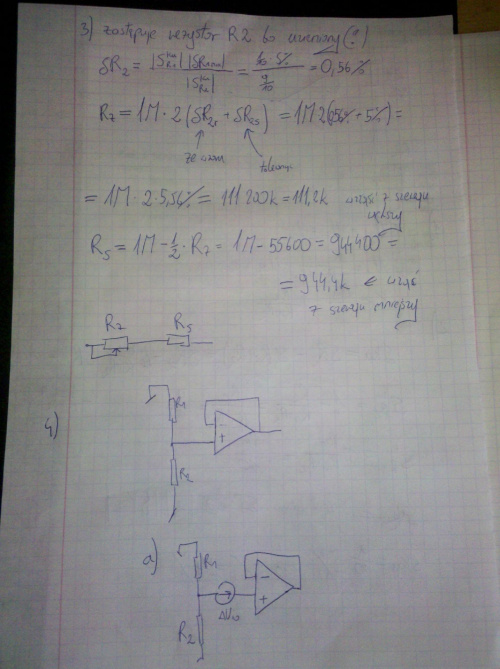 3) zastępuje rezystor R2 bo uziemiony (!)
δR₂ = |S_R1^ku| |δR1max| / |S_R2^ku| = 1/10 · 5% / 9/10 = 0,56%
R₇ = 1M · 2 (δR₂r + δR₂s) = 1M 2(0,56% + 5%) =
ze wzoru
tolerancja
= 1M · 2 · 5,56% = 111 200k = 111,2k wziąć z szeregu
większy
R₅ = 1M - ½ · R₇ = 1M - 55600 = 944400 =
= 944,4k ← wziąć
z szeregu mniejszy
R₇ R₅
4)
R₁
+
R₂
a)
R₁
-
+
ΔU₁₀
R₂